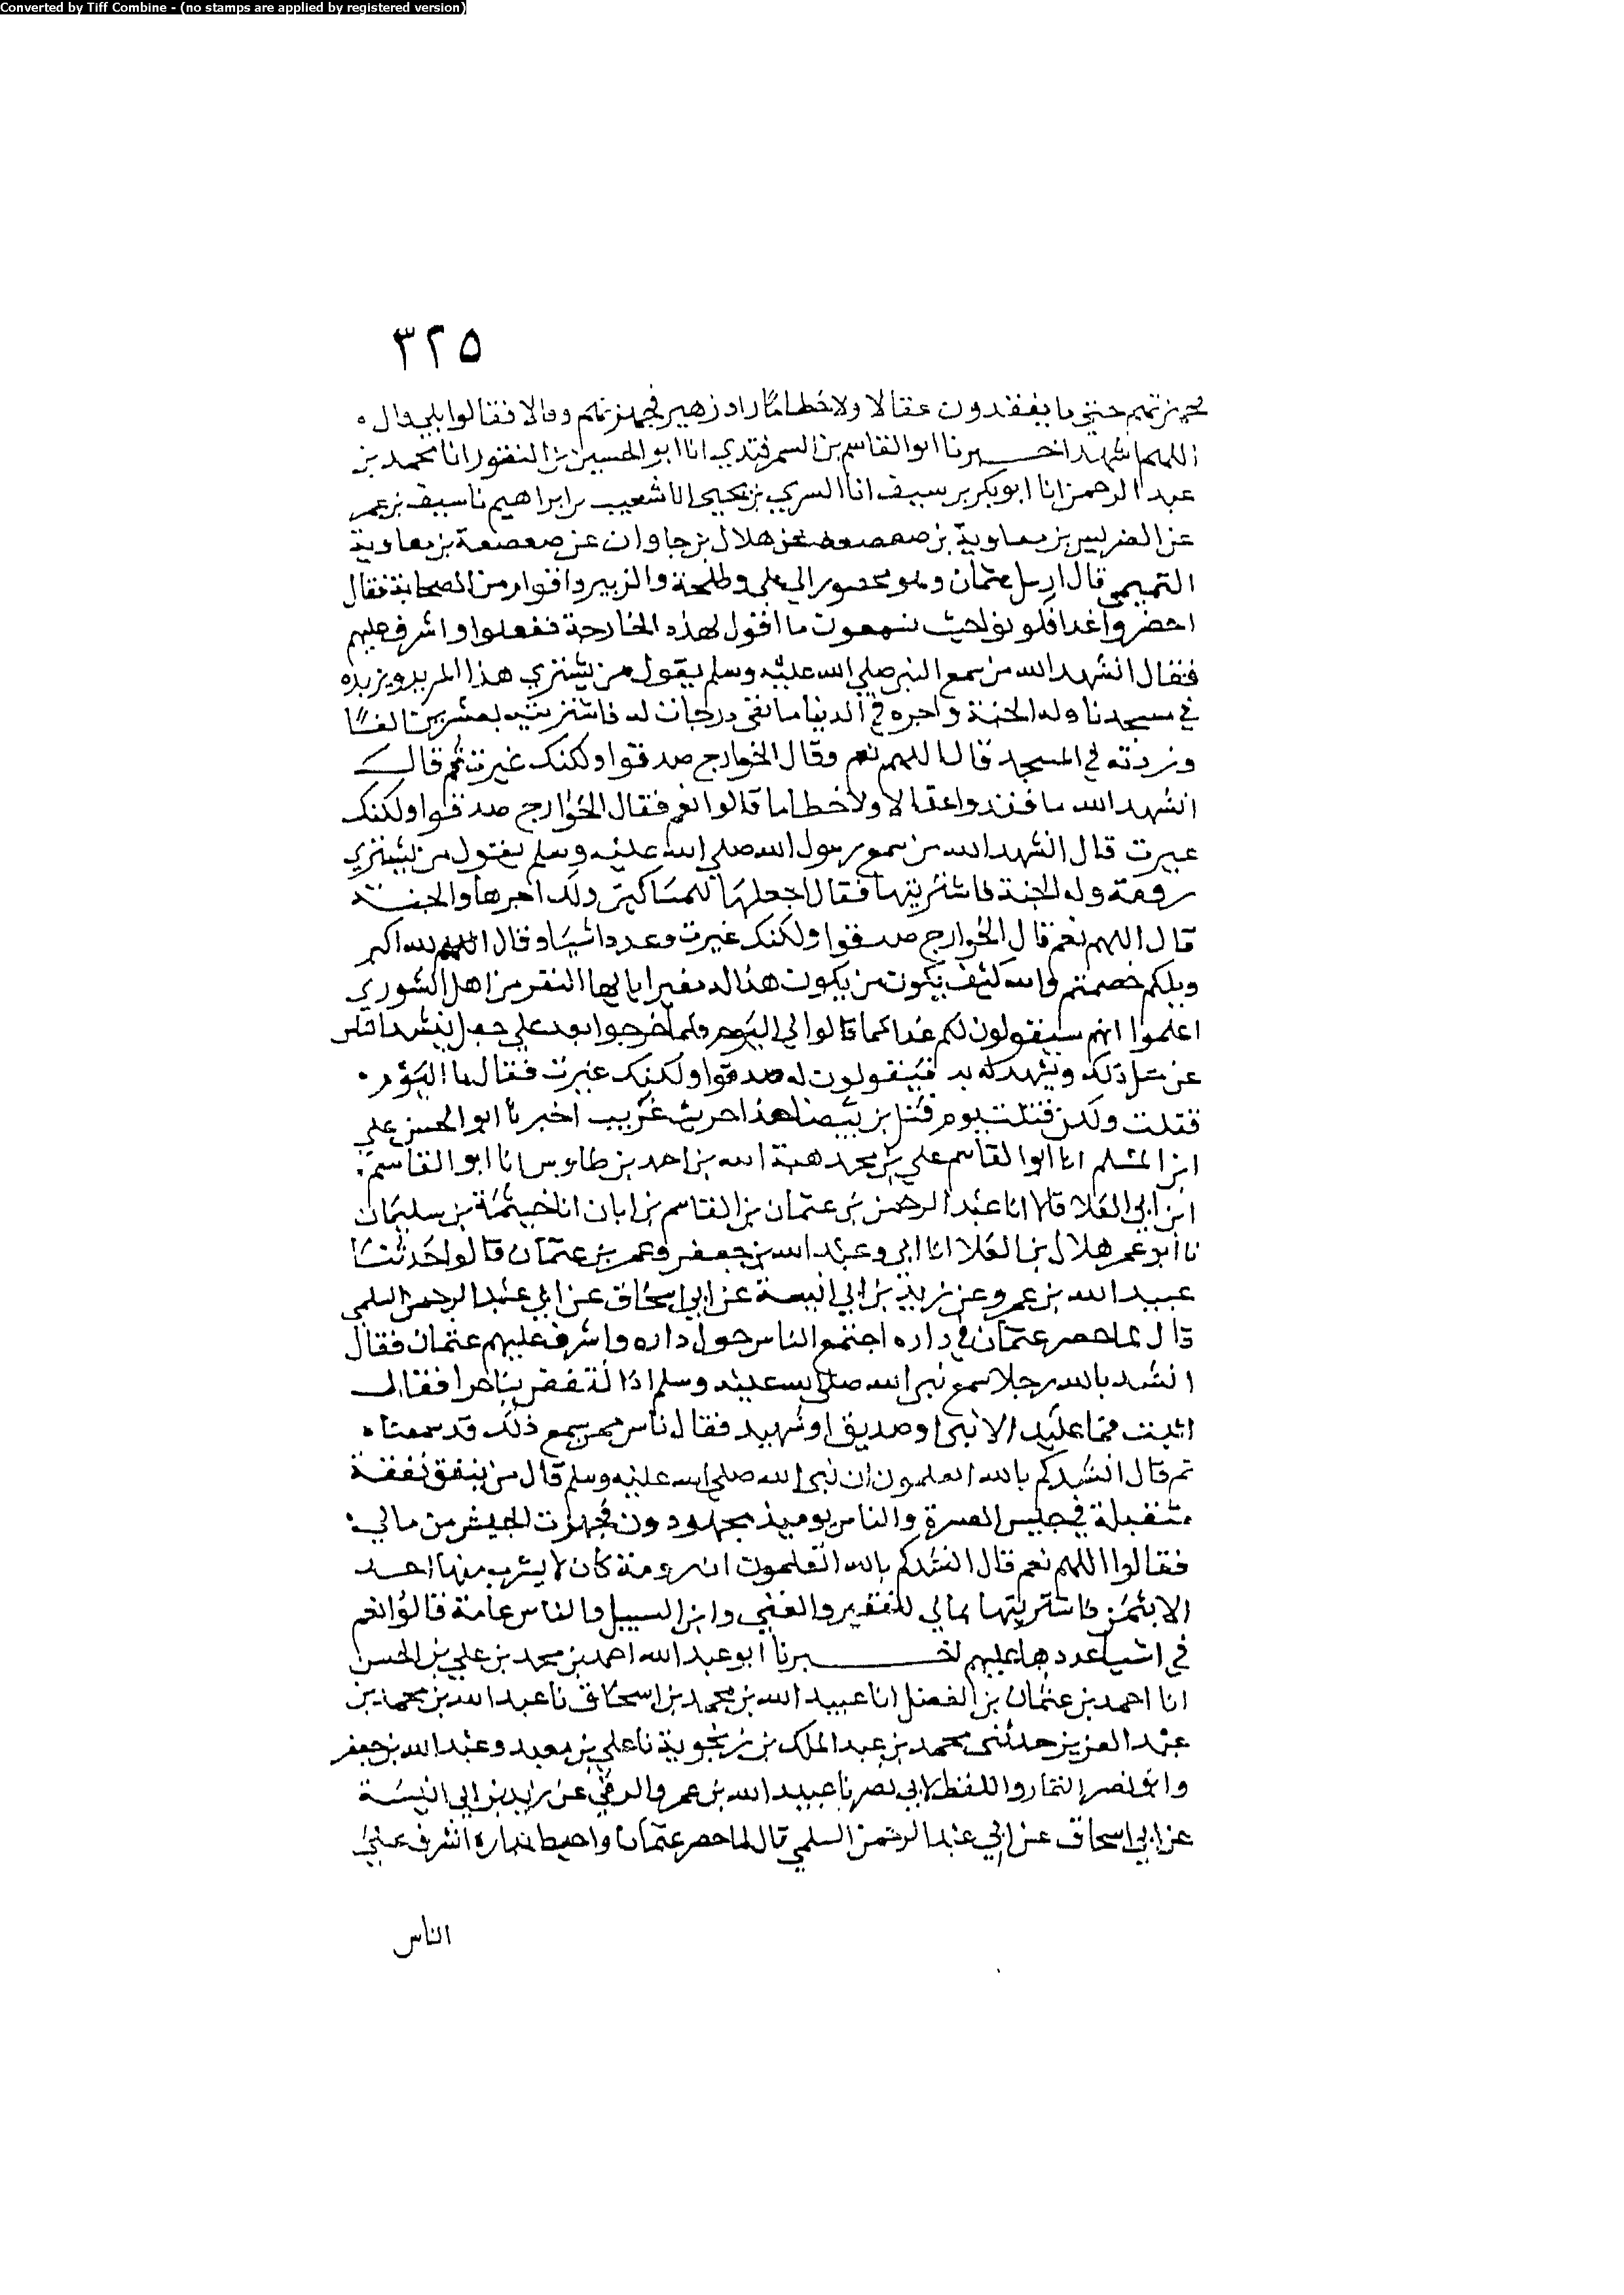 Converted by Tiff Combine - (no stamps are applied by registered version)
٣٢٥
حتى ما يفقدون عقالا ولا خطاما زاد زهير فجهزتهم وقالا فقالوا بلى قال ه
اللهم اشهد اخبرنا ابو القاسم بن السمرقندي انا ابو الحسين بن النقور انا محمد بن
عبد الرحمن انا ابو بكر بن سيف انا السري بن يحيى انا شعيب بن ابراهيم نا سيف بن عمر
عن الضريس بن معاوية بن صعصعة عن هلال بن جاوان عن صعصعة بن معاوية
التميمي قال ارسل عثمان وهو محصور الى علي وطلحة والزبير واقوام من الصحابة فقال
احضروا غدا حيث تسمعون ما اقول لهذه الخارجة ففعلوا واشرف عليهم
فقال انشد الله من سمع النبي صلى الله عليه وسلم يقول من يشتري هذا المربد ويزيده
في مسجدنا وله الجنة واجره في الدنيا ما بقي درجات له فاشتريته بعشرين الفا
وزدته في المسجد قالا اللهم نعم وقال الخوارج صدقوا ولكنك غيرت ثم قال
انشد الله ما فقدوا عقالا ولا خطاما قالوا نعم فقال الخوارج صدقوا ولكنك
غيرت قال انشد الله من سمع رسول الله صلى الله عليه وسلم يقول من يشتري
رومة وله الجنة فاشتريتها فقال اجعلها للمساكين ولك اجرها والجنة
قال اللهم نعم قال الخوارج صدقوا ولكنك غيرت وعدد اشياء وقال الله اكبر
ويلكم خصمتم والله كيف يكون من يكون هذا له مغيرا يا ايها النفر من اهل الشورى
اعلموا انهم سيقولون لكم غدا كما قالوا لي اليوم فلما خرجوا بعد على جعل ينشد
عن مثل ذلك ويشهد له به فيقولون له صدقوا ولكنك غيرت فقال ما اليوم
قتلت ولكن قتلت يوم قتل بن بيضا هذا حديث غريب اخبرنا ابو الحسن علي
ابن المسلم انا ابو القاسم علي بن محمد هبة الله بن احمد بن طاوس انا ابو القاسم
ابن ابي العلا قالا انا عبد الرحمن بن عثمان بن القاسم بن ابان انا خيثمة بن سليمان
نا ابو عمر هلال بن العلا انا ابي وعبد الله بن جعفر وعمر بن عثمان قالوا حدثنا
عبيد الله بن عمرو عن زيد بن ابي انيسة عن ابي اسحاق عن ابي عبد الرحمن السلمي
قال لما حصر عثمان في داره اجتمع الناس حول داره واشرف عليهم عثمان فقال
انشد بالله رجلا سمع نبي الله صلى الله عليه وسلم اذا انتفض بنا حرا فقال
اثبت فما عليك الا نبي او صديق او شهيد فقال ناس ممن سمع ذلك قد سمعناه
ثم قال انشدكم بالله اتعلمون ان نبي الله صلى الله عليه وسلم قال من ينفق نفقة
متقبلة في جيش العسرة والناس يوميذ مجهودون فجهزت الجيش من مالي
فقالوا اللهم نعم قال انشدكم بالله اتعلمون ان رومة كان لا يشرب منها احد
الا بثمن فاشتريتها بمالي للفقير والغني وابن السبيل والناس عامة قالوا نعم
في اشيا عددها عليهم اخبرنا ابو عبد الله احمد بن محمد بن علي بن الحسن
انا احمد بن عثمان بن الفضل انا عبيد الله بن محمد بن اسحاق نا عبد الله بن محمد بن
عبد العزيز حدثني محمد بن عبد الملك بن زنجوية نا علي بن معبد وعبد الله بن جعفر
وابو نصر التمار واللفظ لابي نصر نا عبيد الله بن عمرو الرقي عن زيد بن ابي انيسة
عن ابي اسحاق عن ابي عبد الرحمن السلمي قال لما حصر عثمان واحيط بداره اشرف على
الناس